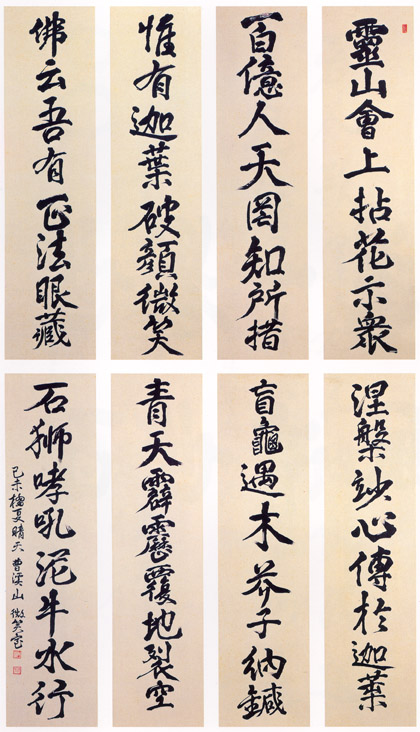 靈山會上拈花示衆
百億人天罔知所措
惟有迦葉破顔微笑
佛云吾有正法眼藏
涅槃竗心傳於迦葉
盲龜遇木芥子納鍼
青天霹靂覆地裂空
石獅哮吼泥牛水行
己未榴夏晴天 曹溪山 微笑